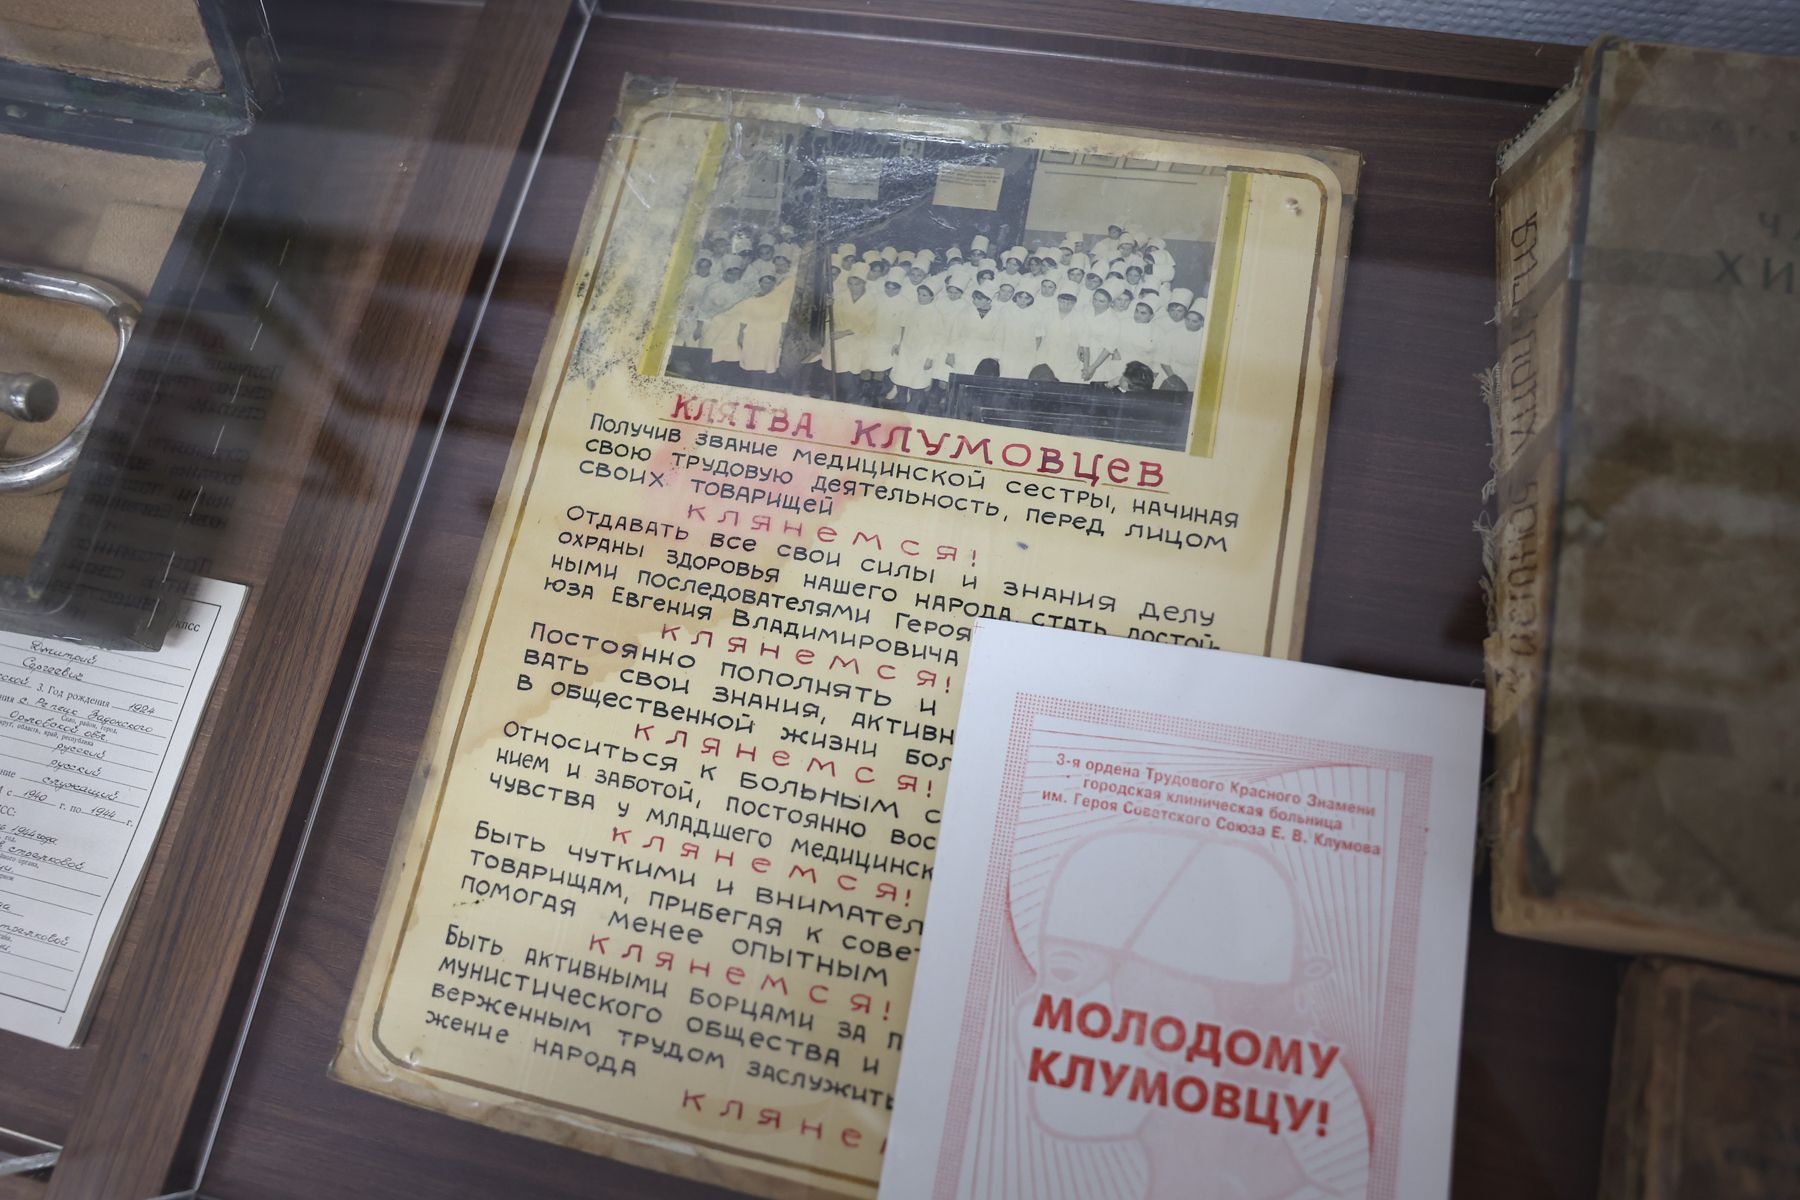 КЛЯТВА КЛУМОВЦЕВ
Получив звание медицинской сестры, начиная
свою трудовую деятельность, перед лицом
своих товарищей
клянемся!
Отдавать все свои силы и знания делу
охраны здоровья нашего народа, стать достой-
ными последователями Героя
юза Евгения Владимировича
клянемся!
Постоянно пополнять и
вать свои знания, активн
в общественной жизни бол
клянемся!
Относиться к больным с
нием и заботой, постоянно вос
чувства у младшего медицинск
клянемся!
Быть чуткими и внимател
товарищам, прибегая к сове
помогая менее опытным
клянемся!
Быть активными борцами за п
мунистического общества и
верженным трудом заслужить
жение народа
кляне
3-я ордена Трудового Красного Знамени
городская клиническая больница
им. Героя Советского Союза Е. В. Клумова
МОЛОДОМУ
КЛУМОВЦУ!
КПСС
Дмитрий
Сергеевич
3. Год рождения 1924
с. Репец Задонского
Село, район, город,
Орловской обл.
округ, область, край, республика
русский
русский
служащий
с 1940 г. по 1944 г.
1944 года
стрелковой
стрелковой
1